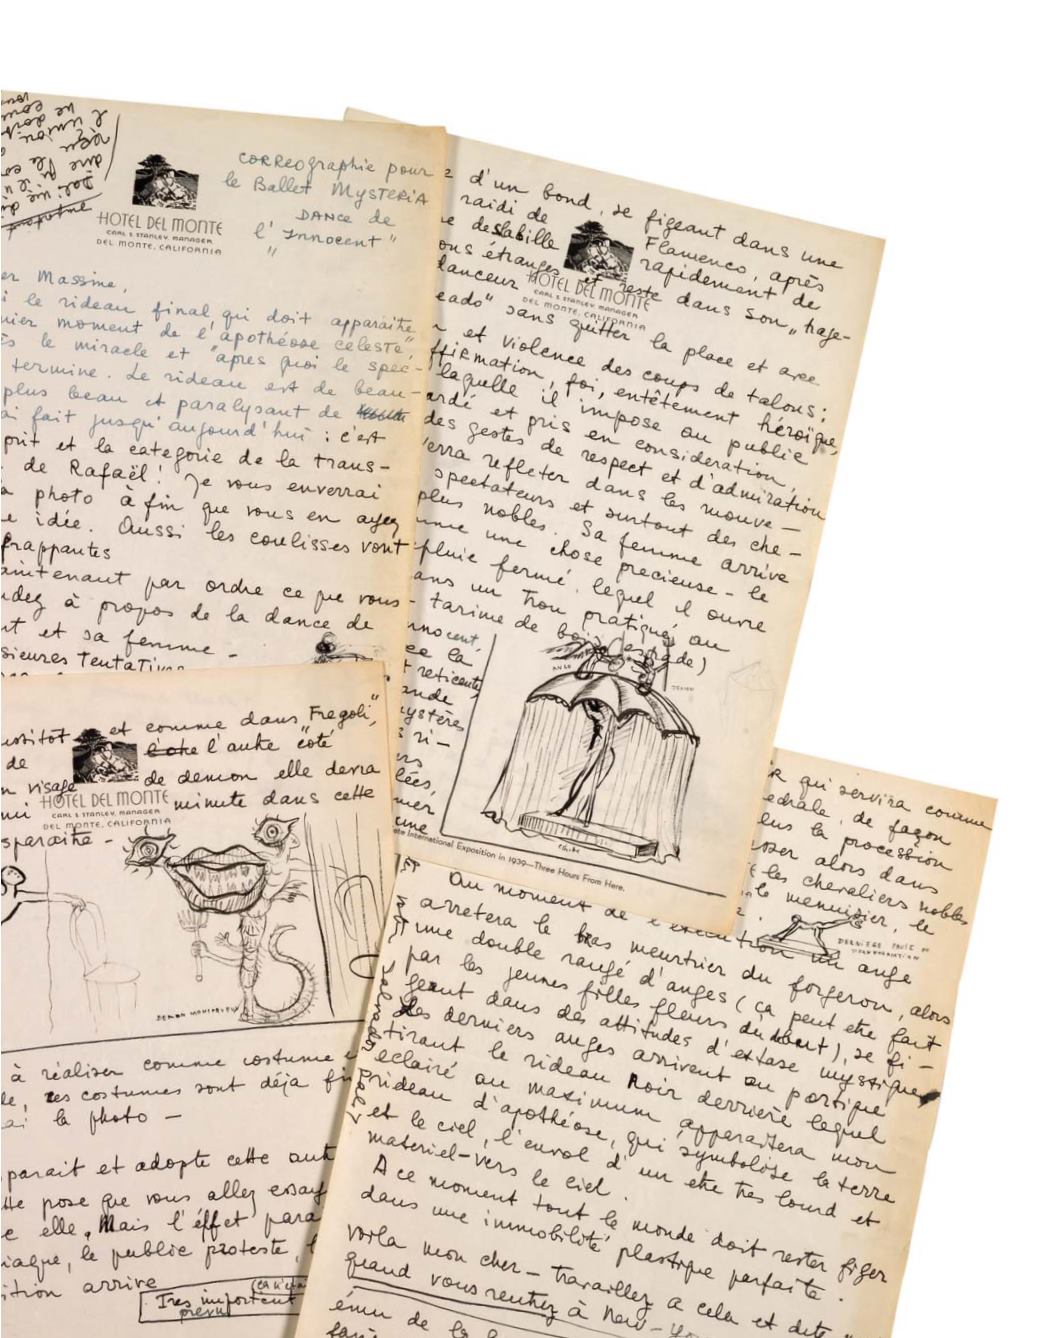 HOTEL DEL MONTE
CARL S. STANLEY, MANAGER
DEL MONTE, CALIFORNIA
CORREOgraphie pour
le Ballet MYSTERiA
DANCE de
l' Innocent"
er Massine,
i le rideau final qui doit apparaitre
nier moment de l'apothéose céleste,
ès le miracle et "apres quoi le spec-
termine. Le rideau est de beau-
plus beau et paralysant de
ai fait jusqu'aujourd'hui : c'est
prit et la categorie de la trans-
de Rafaël! Je vous enverrai
a photo à fin que vous en ayez
e idée. Aussi les coulisses vont
frappantes
aintenant par ordre ce que vous
ndez à propos de la dance de
nt et sa femme -
sieures Tentative
d'un bond, se figeant dans une
raidi de Flamenco, après
e deslabille rapidement de
ons étranges et reste dans son "trage-
danceur
HOTEL DEL MONTE
CARL S. STANLEY, MANAGER
DEL MONTE, CALIFORNIA
eado" sans quitter la place et avec
et violence des coups de talons:
ffirmation, foi, entêtement héroïque,
laquelle il impose au public
ardé et pris en consideration,
des gestes de respect et d'admiration
erra refleter dans les mouve-
spectateurs et surtout des che-
plus nobles. Sa femme arrive
mme une chose precieuse - le
pluie fermé, lequel il ouvre
ans un trou pratiqué au
tarime de bois (estrade)
nnocent,
ce la
t reticente
ande
ystère
s ri-
ers
lées,
mer
une
ANGE
DEMON
ate International Exposition in 1939—Three Hours From Here.
ussitot et comme dans "Fregoli,"
de l'autre coté
n visage de demon elle devra
nui minute dans cette
HOTEL DEL MONTE
CARL S. STANLEY, MANAGER
DEL MONTE, CALIFORNIA
sparaitre -
DEMON MONSTRUEUX
à réaliser comme costume
le, ces costumes sont déja fi
ai la photo -
parait et adopte cette aut
tte pose que vous allez essay
e elle. Mais l'éffet para
iaque, le public proteste,
ition arrive
Tres important
prevu
R qui servira comme
edrale, de façon
lus la procession
oser alors dans
les chevaliers nobles
le menuisier, le
DERNIERE PAUSE
Au moment de l'execution un ange
arretera le bras meurtrier du forgeron, alors
une double rangé d'anges (ça peut etre fait
par les jeunes filles fleurs du debut), se fi-
geant dans des attitudes d'extase mystique
des derniers anges arrivent au portique
tirant le rideau noir derriere lequel
eclairé au maximum apparaitera mon
rideau d'apothéose, qui symbolise la terre
et le ciel, l'envol d'un etre tres lourd et
materiel-vers le ciel.
A ce moment tout le monde doit rester figer
dans une immobilité plastique parfaite.
Voila mon cher - travaillez a cela et dite
quand vous rentrez à New-Yo
ému de la
Salvador Dali